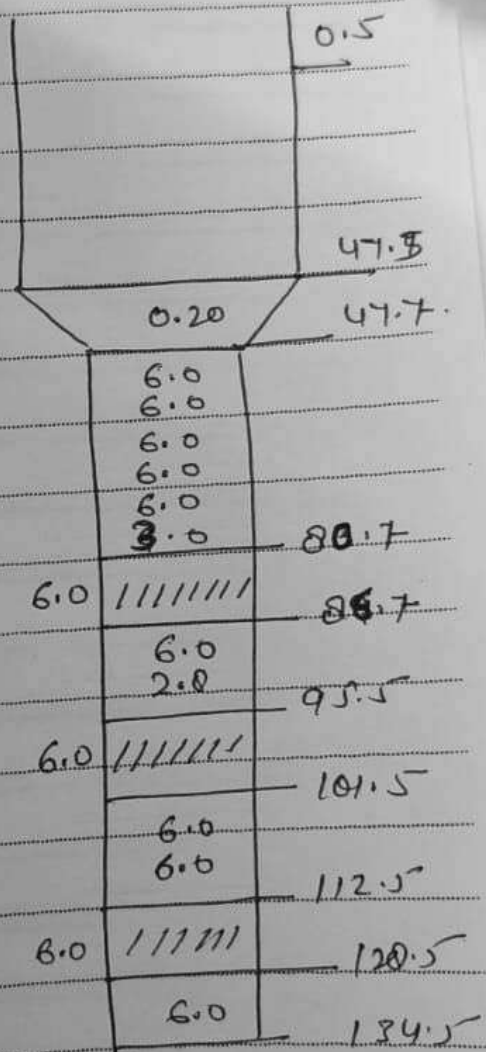 0.5
47.5
0.20 47.7
6.0
6.0
6.0
6.0
6.0
3.0 80.7
6.0
86.7
6.0
2.0
95.5
6.0
101.5
6.0
6.0
112.5
6.0
120.5
6.0
134.5